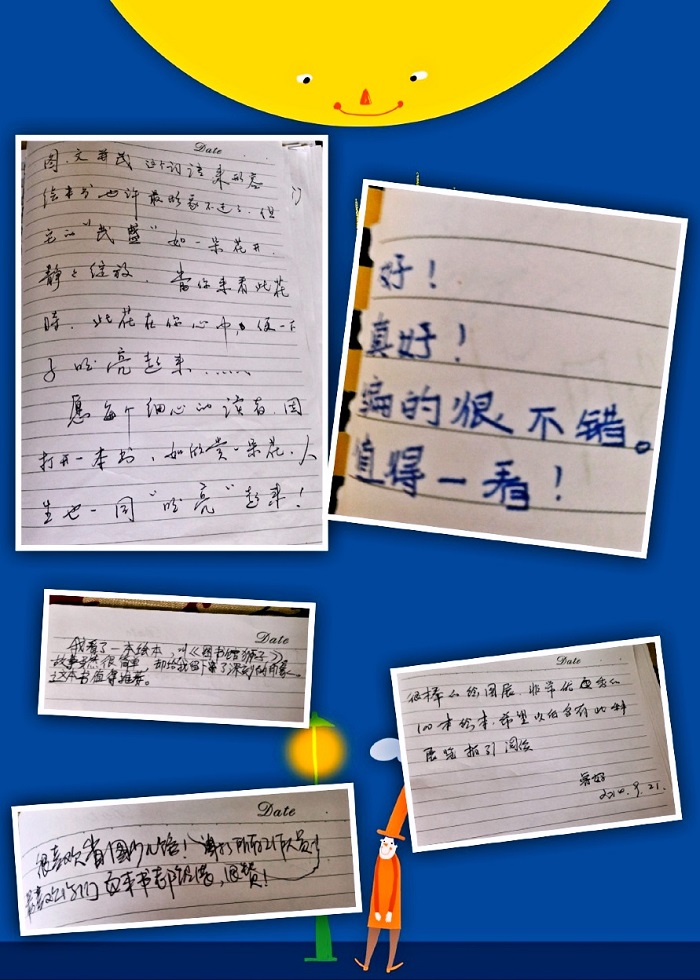 Date
图、文并茂 这个词语来形容
绘本书也许最形象不过了,但
它的“茂盛”如一朵花开,
静静绽放。当你来看此花
时,此花在你心中,便一下
子明亮起来……
愿每个细心的读者,因
打开一本书,如欣赏一朵花,人
生也一同“明亮”起来!
好!
真好!
编的很不错。
值得一看!
Date
我看了一本绘本,叫《图书馆狮子》,
故事虽然很简单,却给我留下了深刻的印象。
这本书值得推荐。
Date
很棒的绘本展,非常优秀的
100本绘本,希望以后多有此种
展览
2014.9.21.
Date
很喜欢省图少儿馆!谢谢所有工作人员
喜欢你们